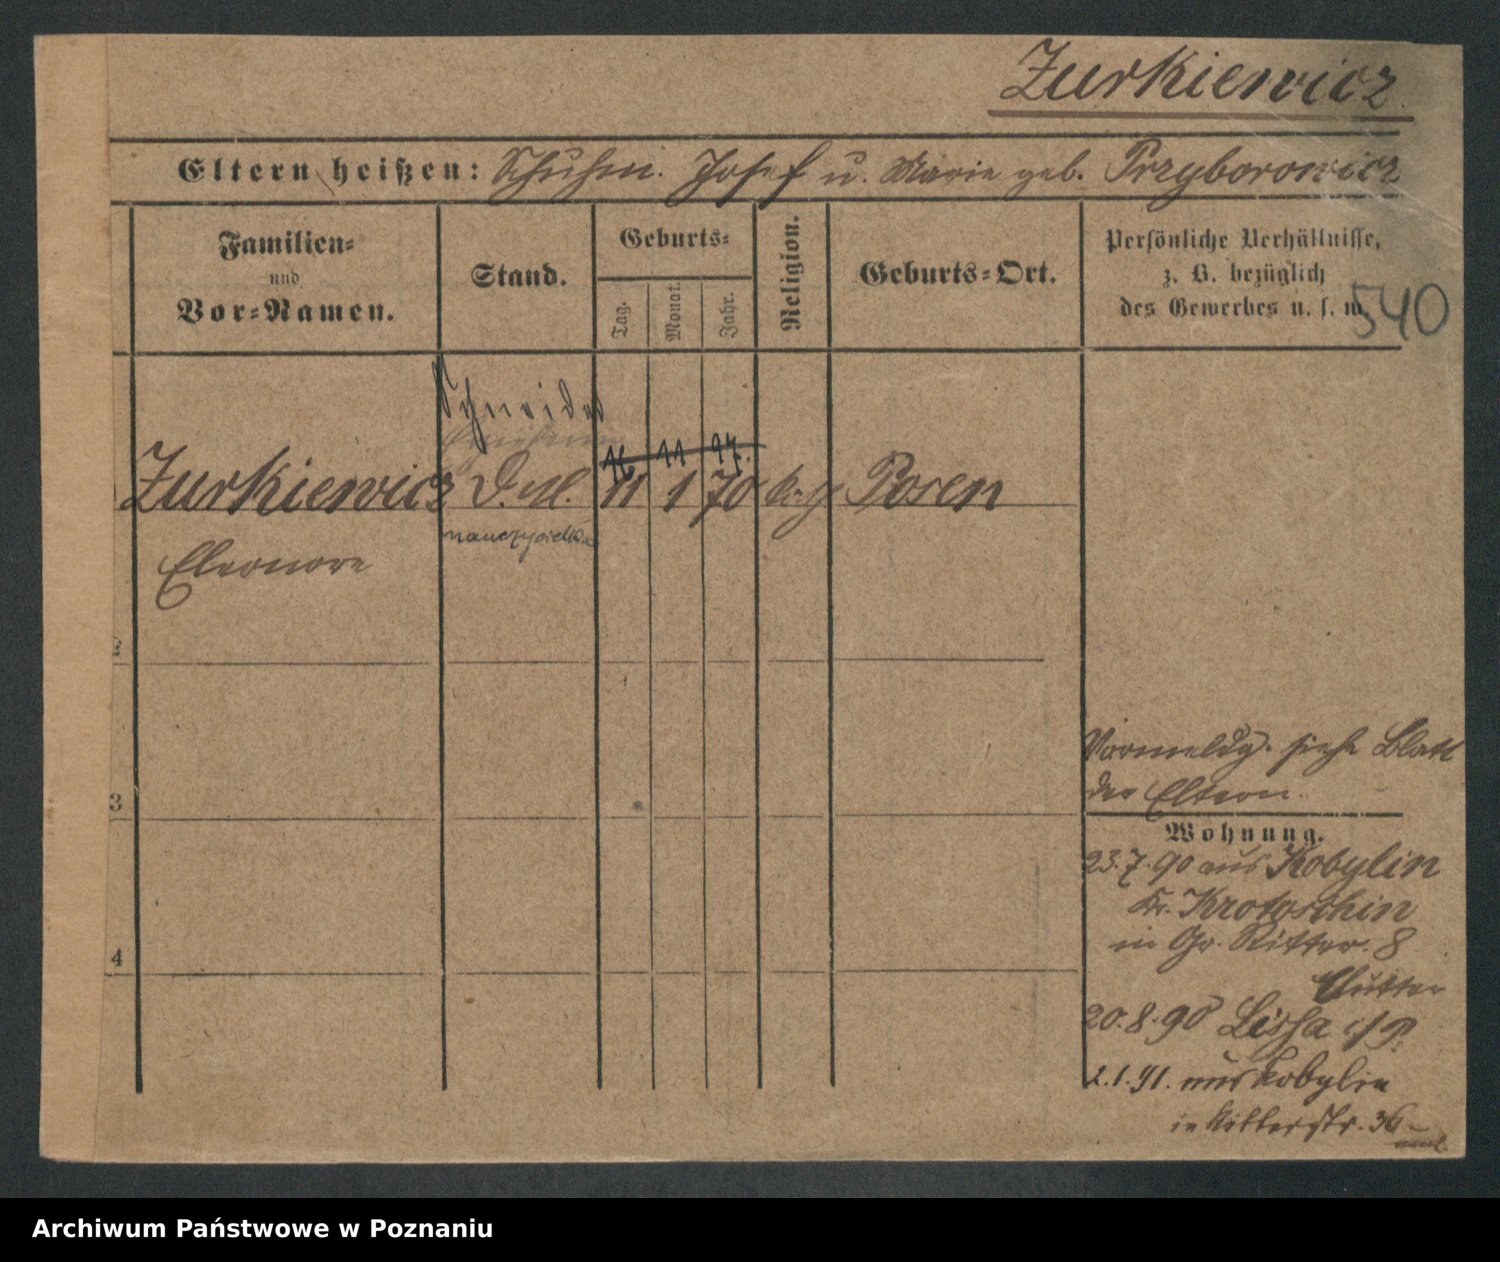 Zurkiewicz
Eltern heißen: Schuhm. Josef u. Marie geb. Przyborowicz
Familien=
und
Vor=Namen.
Stand.
Geburts=
Tag.
Monat.
Jahr.
Religion.
Geburts=Ort.
Persönliche Verhältnisse,
z. B. bezüglich
des Gewerbes u. s. w.
540
Schneider
16 11 94.
Zurkiewicz 11 1 70 Posen
nauczycielka
Eleonore
2
3
4
Vormeldg. siehe Blatt
der Eltern.
Wohnung.
23.7.90 aus Kobylin
Kr. Krotoschin
in Gr. Ritter. 8
Mutter
20.8.90 Lissa i/P.
2.1.91. aus Kobylin
in Ritterstr. 36
Archiwum Państwowe w Poznaniu